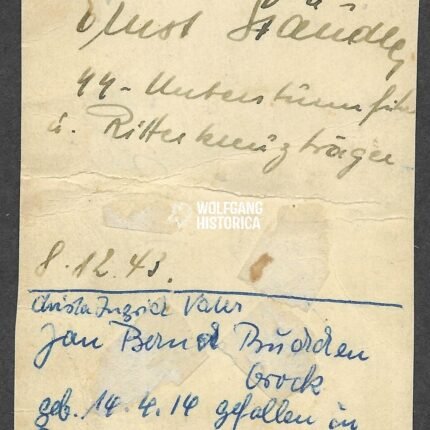 Ernst Stäudle
SS-Untersturmfüh
u. Ritterkreuzträger
WOLFGANG
HISTORICA
8.12.43.
Christa Ingrid Vater
Jan Bernd Budden
brock
geb. 14.4.14 gefallen in